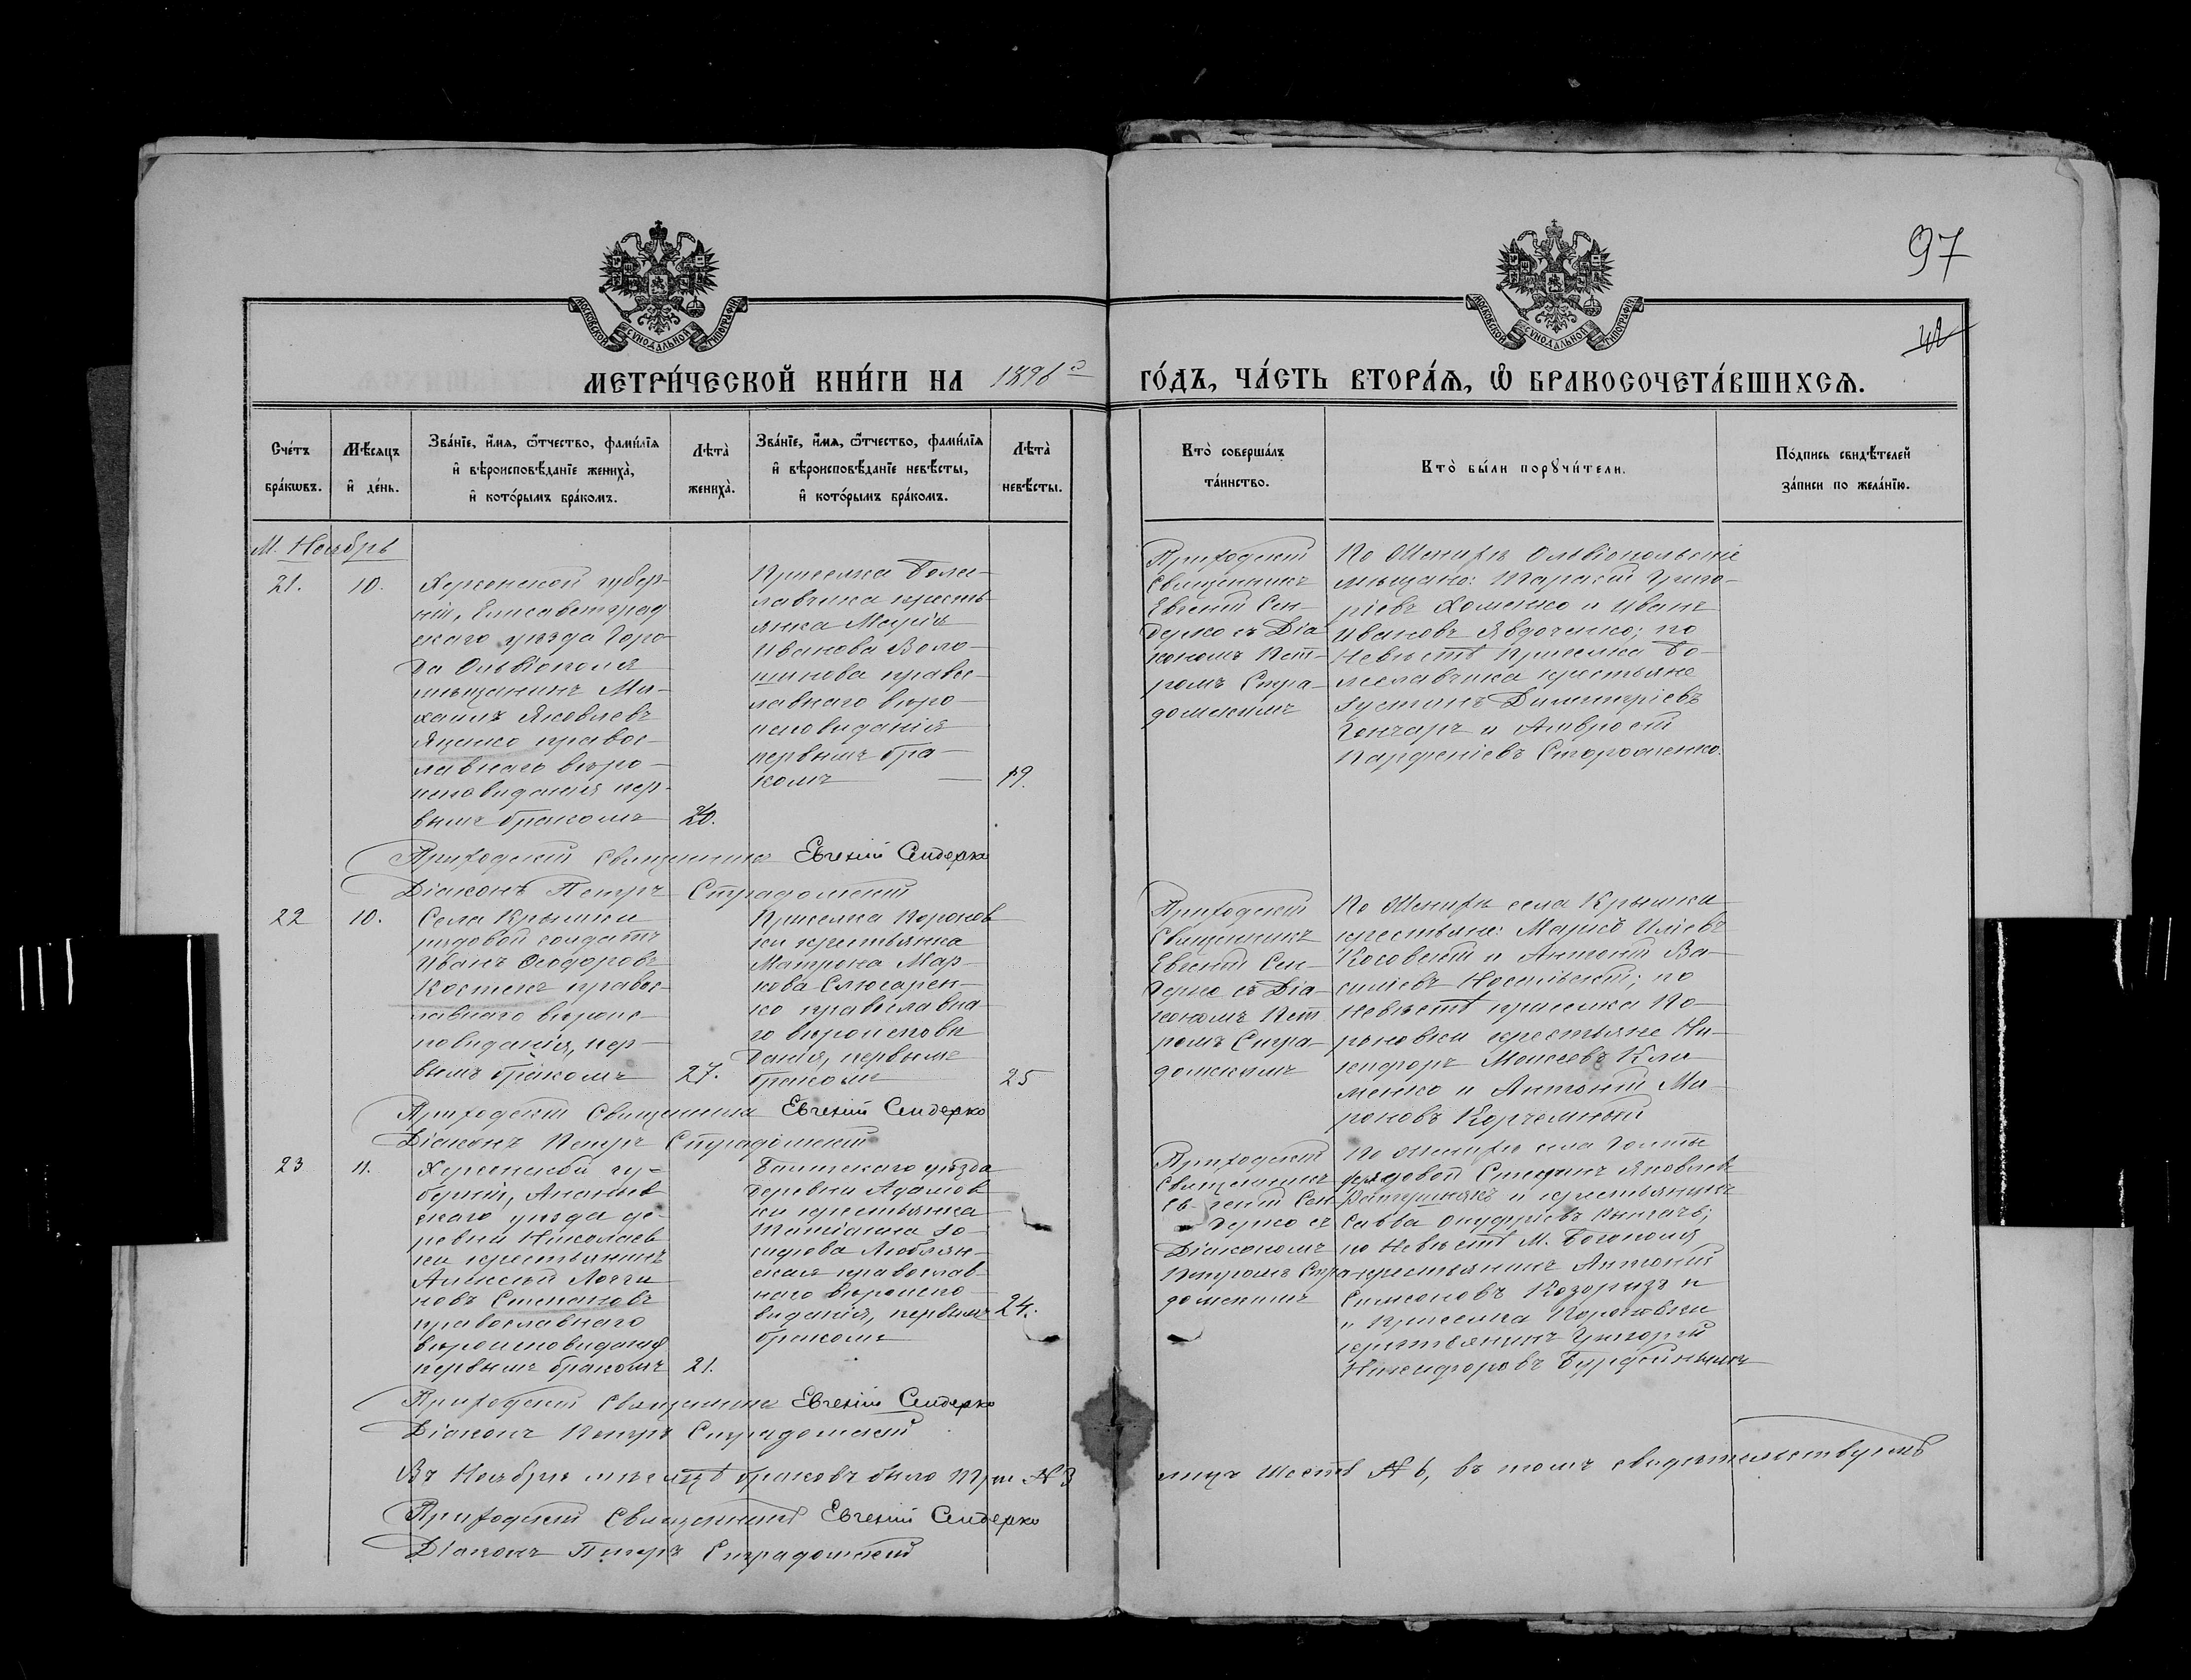 97
42
МОСКОВСКОЙ СѴНОДАЛЬНОЙ ТИПОГРАФІИ
МОСКОВСКОЙ СѴНОДАЛЬНОЙ ТИПОГРАФІИ
МЕТРИ́ЧЕСКОЙ КНИ́ГИ НА 1896 ГО́ДЪ, ЧА́СТЬ ВТОРА́Ѧ, Ѽ БРАКОСОЧЕТА́ВШИХСѦ.
Сче́тъ
бра́кѡвъ.
Мѣ́сѧцъ
и҆ де́нь.
Зва́нїе, и҆́мѧ, ѻ҆́тчество, фами́лїѧ
и҆ вѣроисповѣ́данїе жениха̀,
и҆ кото́рымъ бра́комъ.
Лѣ́та̀
жениха̀.
Зва́нїе, и҆́мѧ, ѻ҆́тчество, фами́лїѧ
и҆ вѣроисповѣ́данїе невѣ́сты,
и҆ кото́рымъ бра́комъ.
Лѣ́та̀
невѣ́сты.
Кто̀ соверша́лъ
та́инство.
Кто̀ бы́ли порꙋчи́тели.
По́дпись свидѣ́телей
за́писи по жела́нїю.
М. Ноябрь
21.
10.
Херсонской губер-
ніи, Елисаветград
скаго уѣзда горо-
да Ольвіополя
мѣщанинъ Ми-
хаилъ Яковлевъ
Яценко правос-
лавнаго вѣро-
исповѣданія пер-
вымъ бракомъ
20.
Приселка Боле-
славчика кресть
янка Марія
Иванова Воло-
шинова правос-
лавнаго вѣро-
исповѣданія
первымъ бра-
комъ
19.
Приходскій
Священникъ
Евгеній Сен-
дерко съ Діа
кономъ Пет-
ромъ Стра-
домскимъ
По Женихѣ Ольвіопольскіе
мѣщане: Тарасій Григо-
ріевъ Хоменко и Иванъ
Ивановъ Явдоченко; по
Невѣстѣ Приселка Бо-
леславчика крестьяне
Іустинъ Димитріевъ
Гончаръ и Амвросій
Парфеніевъ Стороженко.
Приходскій Священникъ Евгеній Сендерко
Діаконъ Петръ Страдомскій
22
10.
Села Крымки
рядовой солдатъ
Иванъ Ѳеодоровъ
Костенъ правос-
лавнаго вѣроис-
повѣданія, пер-
вымъ бракомъ
27.
Приселка Коронов
ки крестьянка
Матрона Мар-
кова Слюсарен-
ко православна-
го вѣроисповѣ
данія, первымъ
бракомъ
25
Приходскій
Священникъ
Евгеній Сен-
дерко съ Діа-
кономъ Пет
ромъ Стра-
домскимъ
По Женихѣ села Крымки
крестьяне: Марко Иліевъ
Косовскій и Антоній Ва-
силіевъ Носальскій; по
невѣстѣ приселка Ко-
роновки крестьяне Ни-
кифоръ Моисеевъ Кли-
менко и Антоній Ми-
роновъ Корчемный
Приходскій Священникъ Евгеній Сендерко
Діаконъ Петръ Страдомскій
23
11.
Херсонской гу-
берніи, Ананьев
скаго уѣзда де-
ревни Николаев
ки крестьянинъ
Алексѣй Логги
новъ Степановъ
православнаго
вѣроисповѣданія
первымъ бракомъ
21.
Балтскаго уѣзда
деревни Адамов
ки крестьянка
Татіана Іо-
сифова Люблян-
ская православ-
наго вѣроиспо-
вѣданія, первымъ
бракомъ
24.
Приходскій
Священникъ
Евгеній Сен
дерко съ
Діакономъ
Петромъ Стра
домскимъ
По Женихѣ села Голты
рядовой Стефанъ Яковлевъ
и крестьянинъ
Савва Онуфріевъ
по Невѣстѣ М. Богополя
крестьянинъ Антоній
Симеоновъ Козоризъ и
Приселка Короновки
крестьянинъ Григорій
Никифоровъ
Приходскій Священникъ Евгеній Сендерко
Діаконъ Петръ Страдомскій
Въ Ноябрѣ мѣсяцѣ браковъ было три № 3 лицъ шесть № 6, въ томъ свидѣтельствуемъ
Приходскій Священникъ Евгеній Сендерко
Діаконъ Петръ Страдомскій